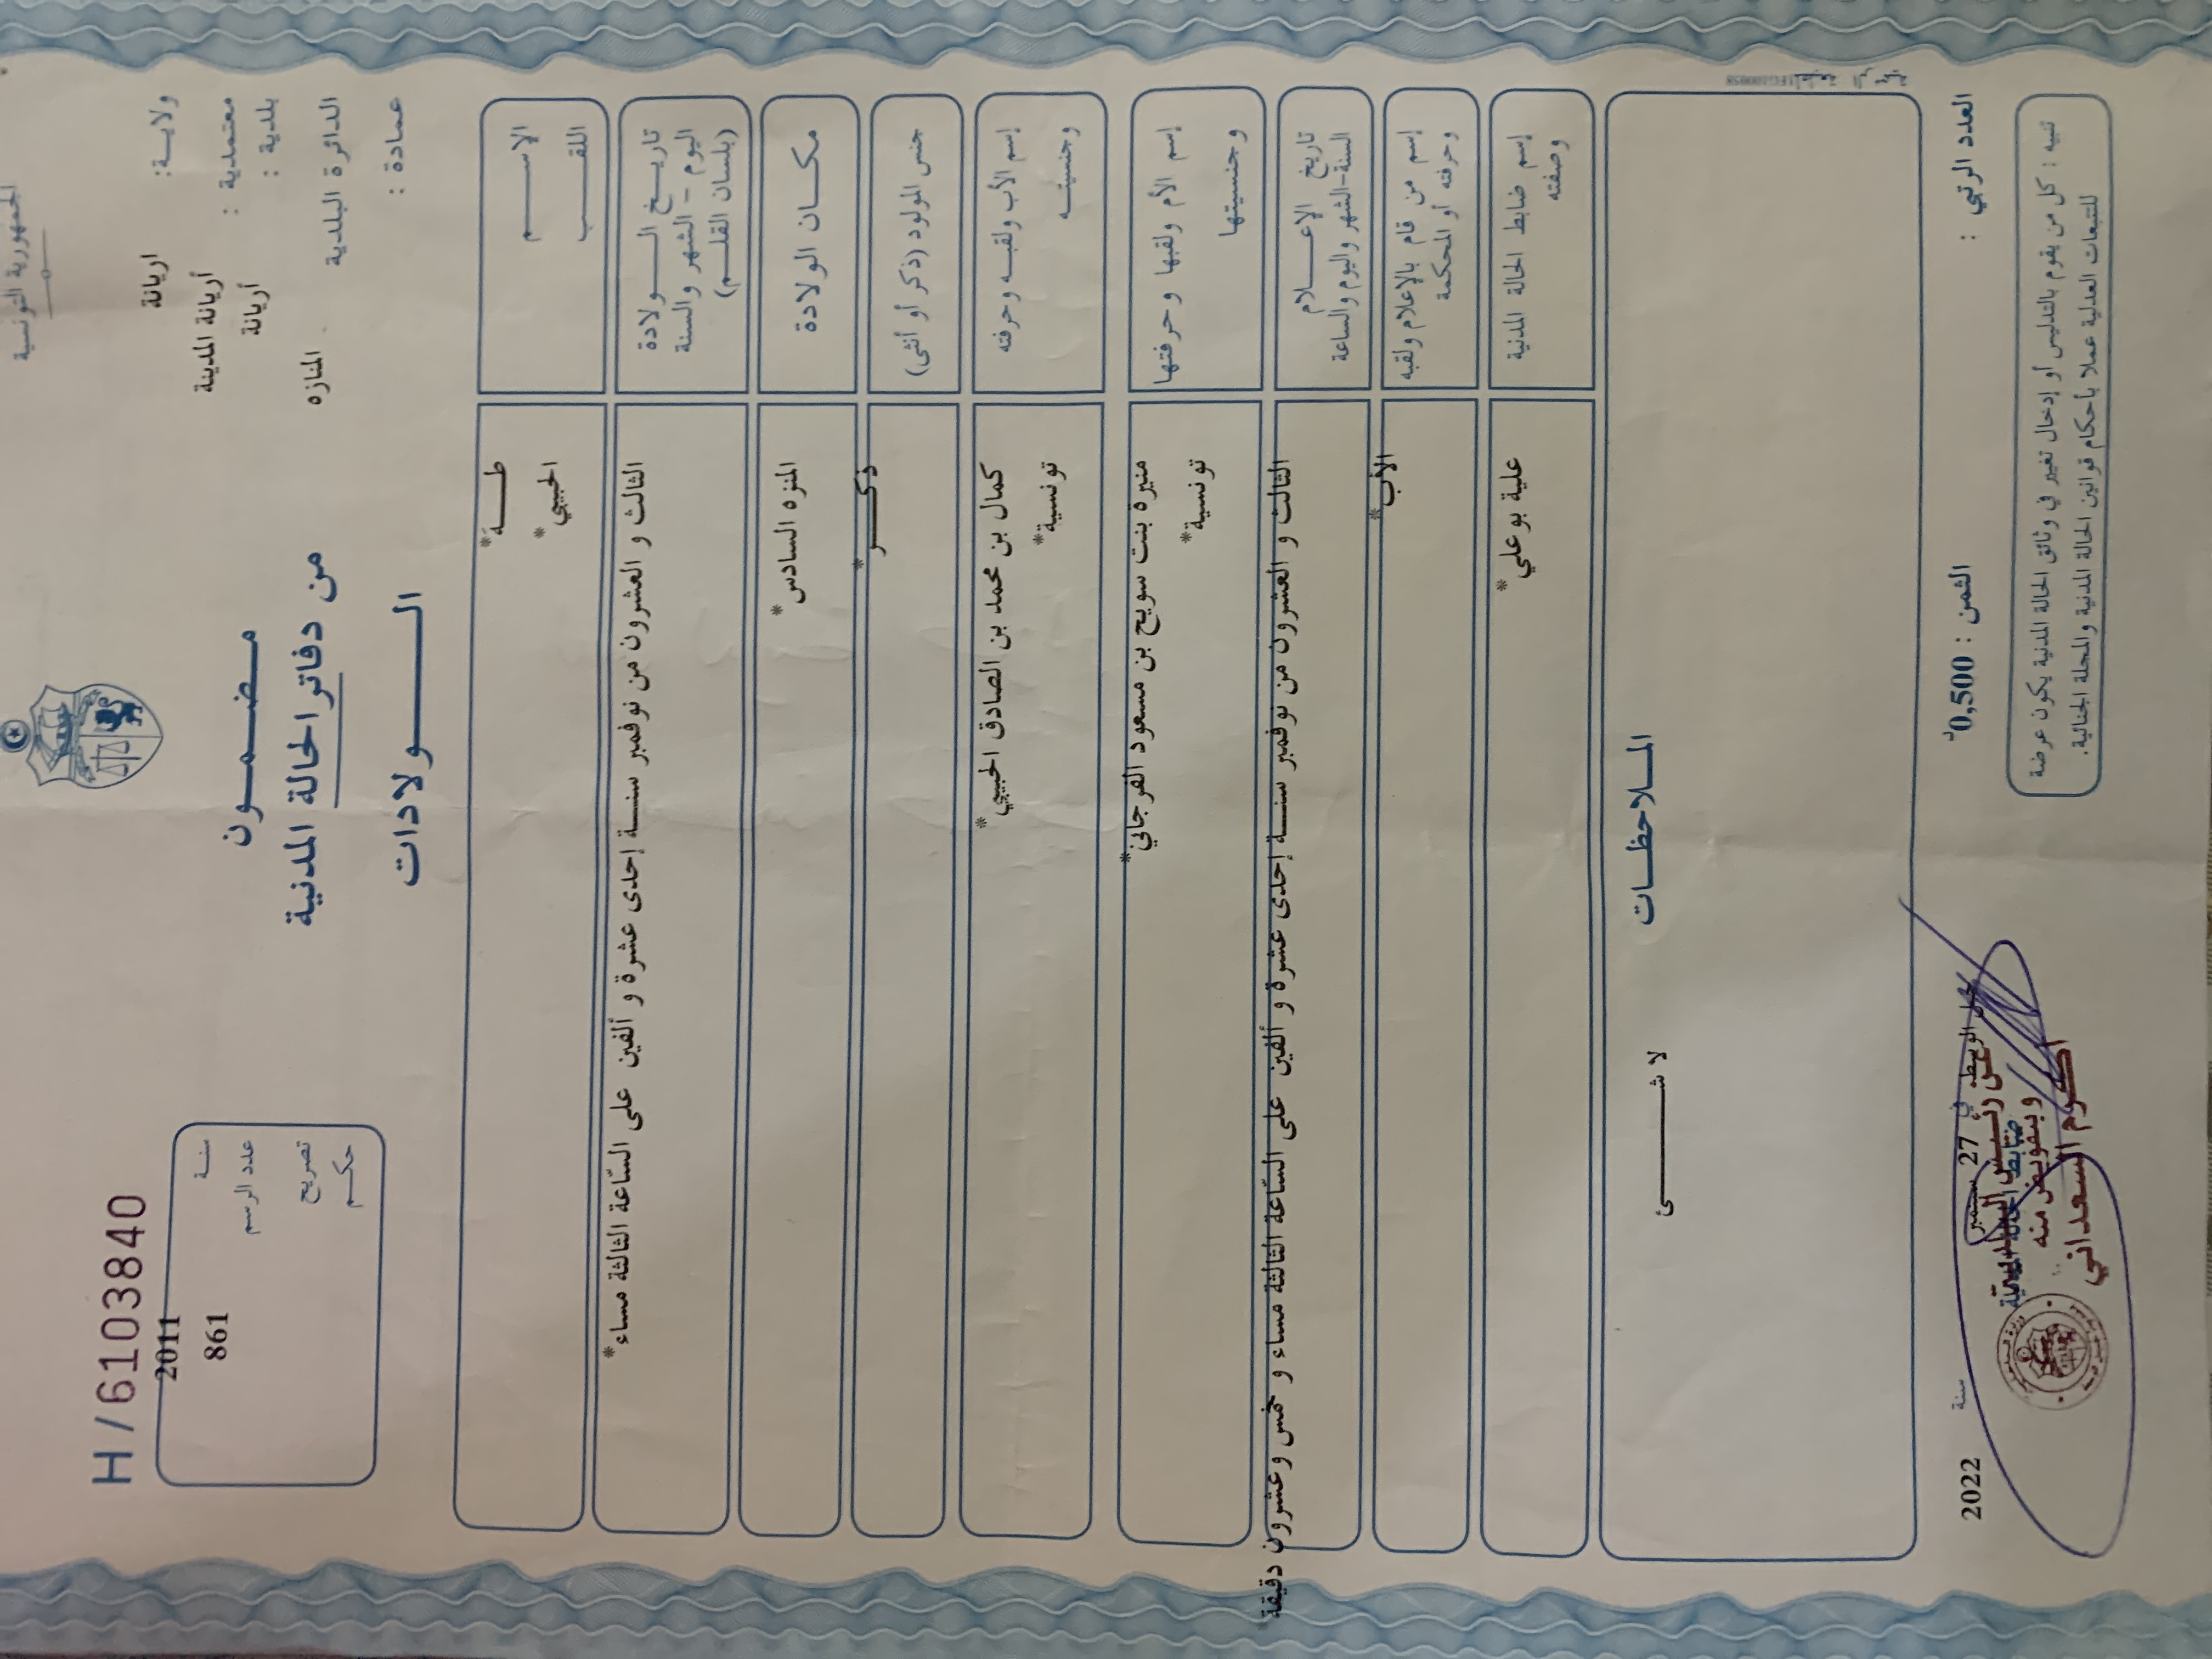 الجمهورية التونسية
ولايـة:
اريانة
معتمدية :
أريانة المدينة
بلدية :
أريانة
الدائرة البلدية
المنازه
عمادة :
مـضـمـــون
من دفاتر الحالة المدنية
الــــولادات
H/6103840
سنـة
2011
عدد الرسم
861
تصريح
حكـم
الاســـــم
طـــــه*
اللقـــب
الحبيبي*
تاريــخ الـــــولادة
اليوم - الشهر والسنة
(بلسان القلـم)
الثالث و العشرون من نوفمبر سنـــة إحدى عشرة و ألفين على السّاعة الثالثة مساء*
مكــان الولادة
المنزه السادس*
جنس المولود (ذكر أو أنثى)
ذكـــــر*
إسم الأب ولقبـه وحرفته
وجنسيتـه
كمال بن محمد بن الصادق الحبيبي*
تونسية*
إسم الأم ولقبها وحرفتها
وجنسيتها
منيرة بنت سويح بن مسعود الفرجاني*
تونسية*
تاريخ الإعـــلام
السنة-الشهر واليوم والساعة
الثالث و العشرون من نوفمبر سنـــة إحدى عشرة و ألفين على السّاعة الثالثة مساء و خمس وعشرون دقيقة*
إسم من قام بالإعلام ولقبه
وحرفته أو المحكمة
الأب*
إسم ضابط الحالة المدنية
وصفته
علية بوعلي*
المـلاحظـات
لا شـــــــئ
العدد الرتبي :
الثمن : 0,500د
في 27 سبتمبر
سنة 2022
عن رئيس البلدية
ضابط الحالة المدنية
وبتفويض منه
السعداني
تنبيه : كل من يقوم بالتدليس أو إدخال تغيير في وثائق الحالة المدنية يكون عرضة
للتتبعات العدلية عملا بأحكام قوانين الحالة المدنية والمجلة الجنائية.